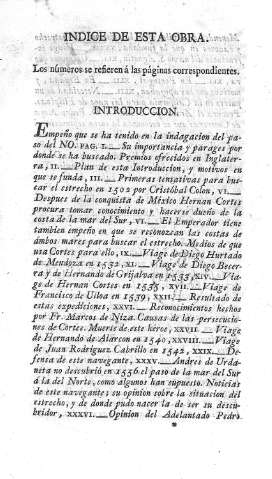 INDICE DE ESTA OBRA.
Los números se refieren á las páginas correspondientes.
INTRODUCCION.
Empeño que se ha tenido en la indagacion del pa-
so del NO. PAG. I. — Su importancia y parages por
donde se ha buscado. Premios ofrecidos en Inglater-
ra, II. — Plan de esta Introduccion, y motivos en
que se funda, III. — Primeras tentativas para bus-
car el estrecho en 1502 por Cristóbal Colon, VI. —
Despues de la conquista de México Hernan Cortes
procura tomar conocimiento y hacerse dueño de la
costa de la mar del Sur, VI. — El Emperador tiene
tambien empeño en que se reconozcan las costas de
ámbos mares para buscar el estrecho. Medios de que
usa Cortes para ello, IX. — Viage de Diego Hurtado
de Mendoza en 1532, XI. — Viage de Diego Becer-
ra y de Hernando de Grijalva en 1533, XIV. — Via-
ge de Hernan Cortes en 1535, XVII. — Viage de
Francisco de Ulloa en 1539, XXII. — Resultado de
estas expediciones, XXVI. — Reconocimientos hechos
por Fr. Marcos de Niza. Causas de las persecucio-
nes de Cortes. Muerte de este héroe, XXVII. — Viage
de Hernando de Alarcon en 1540, XXVIII. — Viage
de Juan Rodriguez Cabrillo en 1542, XXIX. — De-
fensa de este navegante, XXXV. — Andres de Urda-
neta no descubrió en 1556 el paso de la mar del Sur
á la del Norte, como algunos han supuesto. Noticias
de este navegante; su opinion sobre la situacion del
estrecho, y de donde pudo nacer la de ser su descu-
bridor, XXXVI. — Opinion del Adelantado Pedro